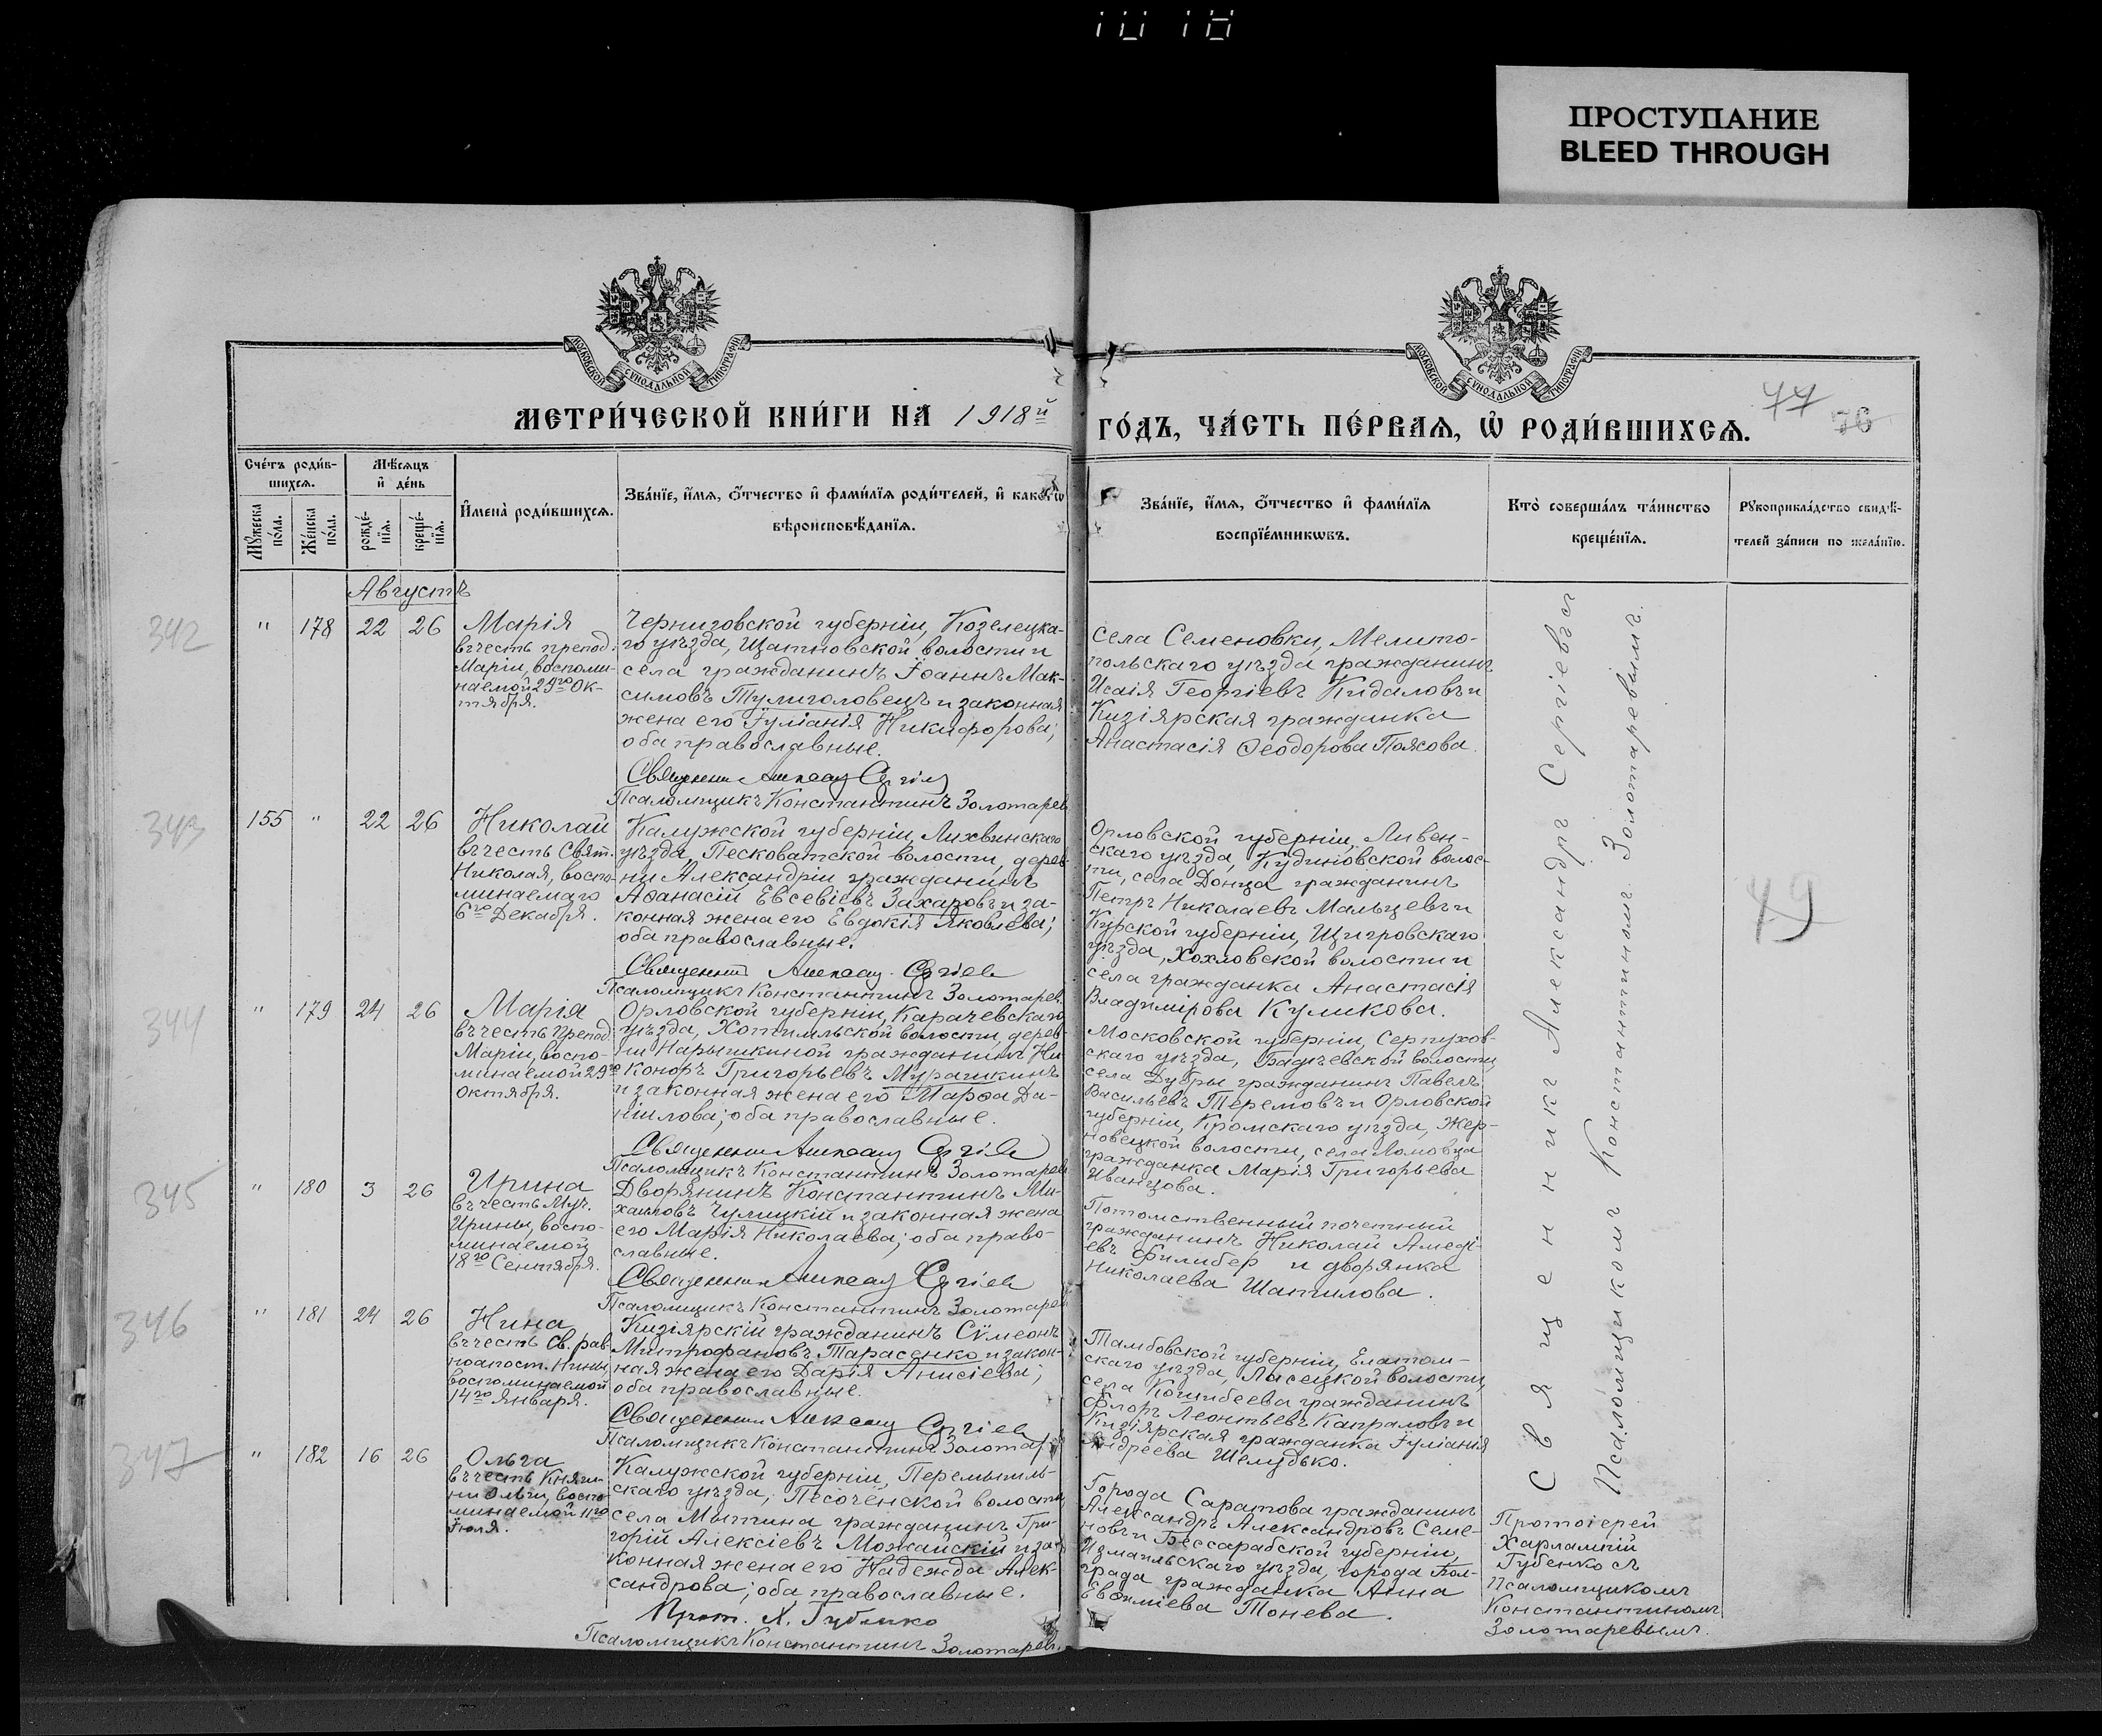 ПРОСТУПАНИЕ
BLEED THROUGH
МОСКОВСКОЙ СѴНОДАЛЬНОЙ ТИПОГРАФІИ
МОСКОВСКОЙ СѴНОДАЛЬНОЙ ТИПОГРАФІИ
МЕТРИ́ЧЕСКОЙ КНИ́ГИ НА 1918й
ГО́ДЪ, ЧА́СТЬ ПЕ́РВАѦ, Ѡ҆ РОДИ́ВШИХСѦ.
77
76
Сче́тъ роди́в-
шихсѧ.
Мѣ́сѧцъ
и҆ де́нь
Мꙋ́жеска
по́ла.
Же́нска
по́ла.
рожде́-
нїѧ.
креще́-
нїѧ.
И҆мена̀ роди́вшихсѧ.
Зва́нїе, и҆́мѧ, ѻ҆́тчество и҆ фами́лїѧ роди́телей, и҆ како́гѡ
вѣроисповѣ́данїѧ.
Зва́нїе, и҆́мѧ, ѻ҆́тчество и҆ фами́лїѧ
воспрїе́мникѡвъ.
Кто̀ соверша́лъ та́инство
креще́нїѧ.
Рꙋкоприкла́дство свидѣ́-
телей за́писи по жела́нїю.
Августъ
342
" 178 22 26
Марія
въ честь препод.
Маріи, воспоми-
наемой 29го Ок-
тября.
Черниговской губерніи, Козелецка-
го уѣзда, волости и
села гражданинъ Іоаннъ Мак-
симовъ Тулиголовецъ и законная
жена его Іуліанія Никифорова;
оба православные.
Священникъ
Псаломщикъ Константинъ Золотарев
села Семеновки, Мелито-
польскаго уѣзда гражданинъ
Исаія Георгіевъ Кидаловъ и
Кизіярская гражданка
Анастасія Ѳеодорова Поясова.
343
155 " 22 26
Николай
въ честь Свят.
Николая, воспо-
минаемаго
6го Декабря.
Калужской губерніи, Лихвинскаго
уѣзда, Песковатской волости, дерев-
ни Александріи гражданинъ
Аѳанасій Евсевіевъ Захаровъ и за-
конная жена его Евдокія Яковлева;
оба православные.
Священникъ
Псаломщикъ Константинъ Золотарев.
Орловской губерніи, Ливен-
скаго уѣзда, Кудиновской волос-
ти, села Донца гражданинъ
Петръ Николаевъ Мальцевъ и
Курской губерніи, Щигровскаго
уѣзда, Хохловской волости и
села гражданка Анастасія
Владимірова Куликова.
49
344
" 179 24 26
Марія
въ честь препод.
Маріи, воспо-
минаемой 29го
Октября.
Орловской губерніи, Карачевскаго
уѣзда, Хотимльской волости, дерев-
ни Нарышкиной гражданинъ Ни-
коноръ Григорьевъ Мурашкинъ
и законная жена его Марѳа Да-
ніилова; оба православные.
Священникъ
Псаломщикъ Константинъ Золотарев
Московской губерніи, Серпухов-
скаго уѣзда, Бадѣевской волости,
села Дубры гражданинъ Павелъ
Васильевъ Теремовъ и Орловской
губерніи, Кромскаго уѣзда, Жер-
новецкой волости, села Ломовца
гражданка Марія Григорьева
Иванцова.
345
" 180 3 26
Ирина
въ честь Муч.
Ирины, воспо-
минаемой
18го Сентября.
Дворянинъ Константинъ Ми-
хаиловъ Чулицкій и законная жена
его Марія Николаева; оба право-
славные.
Священникъ
Псаломщикъ Константинъ Золотарев
Потомственный почетный
гражданинъ Николай Амеді-
евъ Филибер и дворянка
Николаева Шатилова.
346
" 181 24 26
Нина
въ честь Св. рав-
ноапост. Нины,
воспоминаемой
14го Января.
Кизіярскій гражданинъ Сѵмеонъ
Митрофановъ Тарасенко и закон-
ная жена его Дарія Анисіева;
оба православные.
Священникъ
Псаломщикъ Константинъ Золотар
Тамбовской губерніи, Елатом-
скаго уѣзда, волости,
села Кошибеева гражданинъ
Флоръ Леонтьевъ Капраловъ и
Кизіярская гражданка Іуліанія
Андреева Шелудько.
347
" 182 16 26
Ольга
въ честь Княги-
ни Ольги, воспо-
минаемой 11го
Іюля.
Калужской губерніи, Перемышль-
скаго уѣзда, Песоченской волости,
села Мытина гражданинъ Гри-
горій Алексіевъ Можайскій и за-
конная жена его Надежда Алек-
сандрова; оба православные.
Прот. Х. Губенко
Псаломщикъ Константинъ Золотарев.
Города Саратова гражданинъ
Александръ Александровъ Семе-
новъ и Бессарабской губерніи,
Измаильскаго уѣзда, города Бол-
града гражданка Анна
Евѳиміева Тонева.
Священникъ Александръ Сергіевъ съ
Псаломщикомъ Константиномъ Золотаревымъ.
Протоіерей
Харлампій
Губенко съ
псаломщикомъ
Константиномъ
Золотаревымъ.